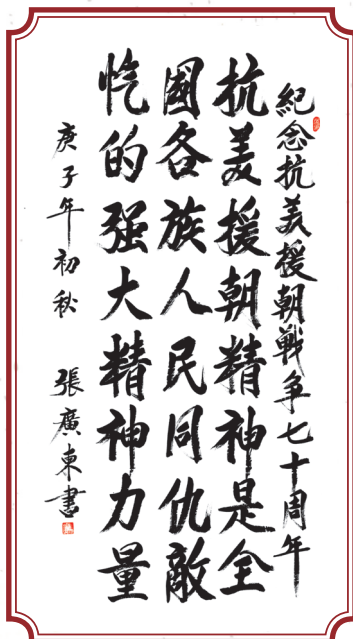 紀念抗美援朝戰争七十周年
抗美援朝精神是全
國各族人民同仇敵
忾的强大精神力量
庚子年初秋 張廣東書